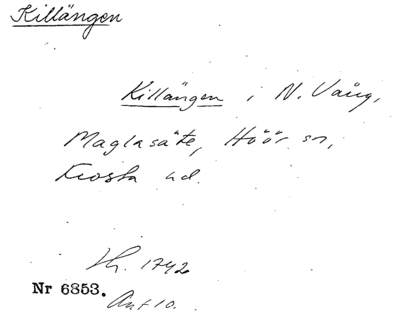 Killängen
Killängen i N. Vång,
Maglasäte, Höör sn,
Frosta hd.
Lh. 1742
Nr 6353. Akt 10.